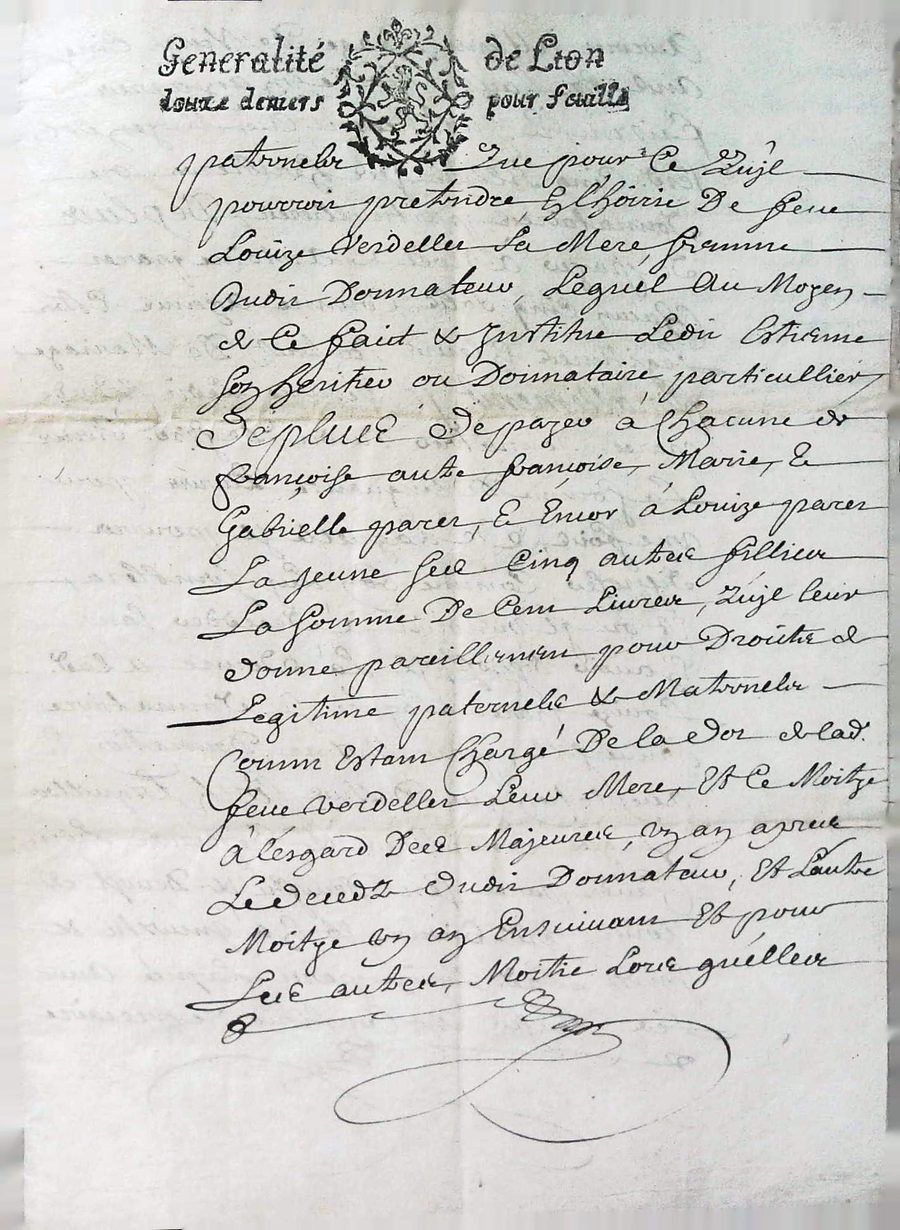 Generalité de Lion
douze deniers pour feuille
paternelz que pour ce qu'jl
pourroit pretendre En l'hoirie De feue
Louize Verdellet sa Mere, femme
Dudit Donnateur, Lequel Au Moyen
de Ce fait & Jnstitue Ledit Estienne
son heritier ou Donnataire particullier
De plus De payer à Chacune de
françoise autre françoise, Marie, &
Gabrielle parer, & Encor à Louize parer
La jeune ses Cinq autres filles
La somme De Cent Livres, qu'jl leur
donne pareillement pour Droitz de
Legitime paternelz & Maternelz
Comm Estant Chargé De la dot de lad.
feue verdellet Leur Mere, Et Ce Moitye
à l'esgard Des Majeures, un an apres
Le decedz dudit Donnateur, Et L'autre
Moitye un an Ensuivant Et pour
Les autres, Moitie Lors qu'elles